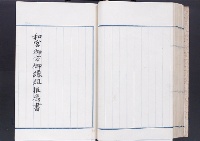 和宮御方御縁組推房書